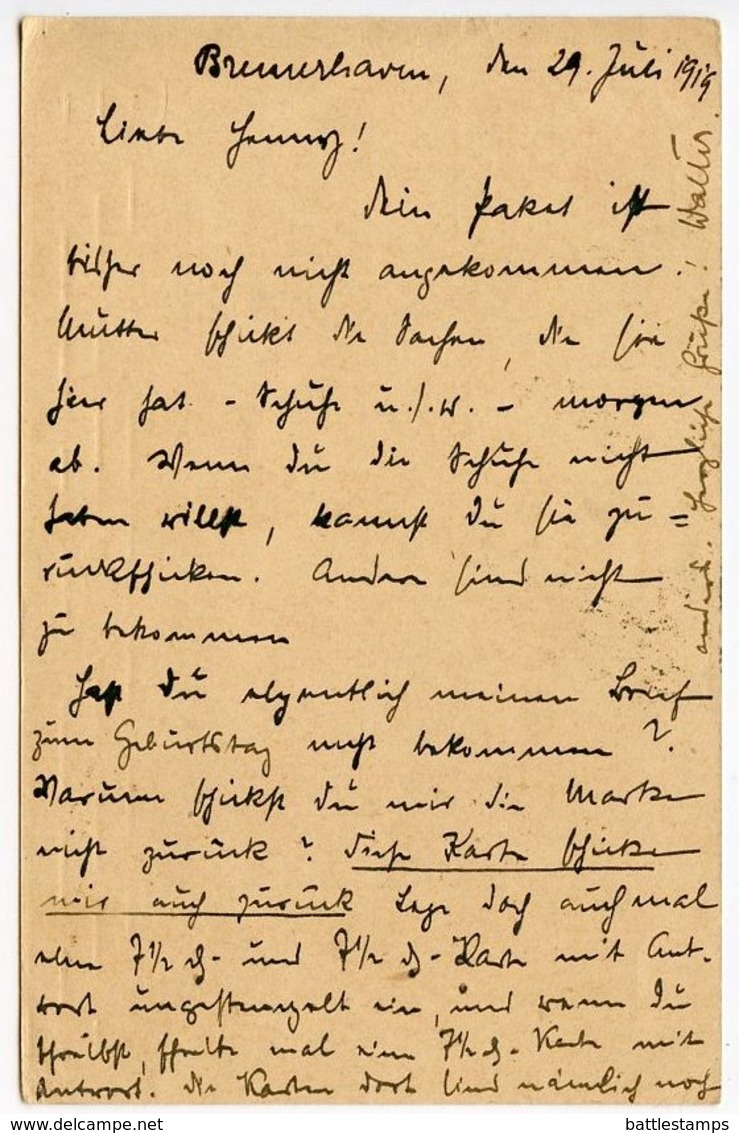 Bremerhaven, den 29. Juli 1919
Liebe Henny!
Dein Paket ist
bisher noch nicht angekommen.
Mutter schickt die Sachen, die sie
hier hat - Schuhe u.s.w. - morgen
ab. Wenn du die Schuhe nicht
haben willst, kannst du sie zu=
rückschicken. Andere sind nicht
zu bekommen
Hast du eigentlich meinen Brief
zum Geburtstag nicht bekommen?
Warum schickst du mir die Marken
nicht zurück? Diese Karte schicke
mir auch zurück Lege doch auch mal
eine 7½ ₰- und 7½ ₰-Karte mit Ant-
wort ungestempelt ein, und wenn du
schreibst, schreibe mal eine 7½ ₰-Karte mit
Antwort. Die Karten dort sind nämlich noch
anders. Herzliche Grüße! Walter.
battlestamps